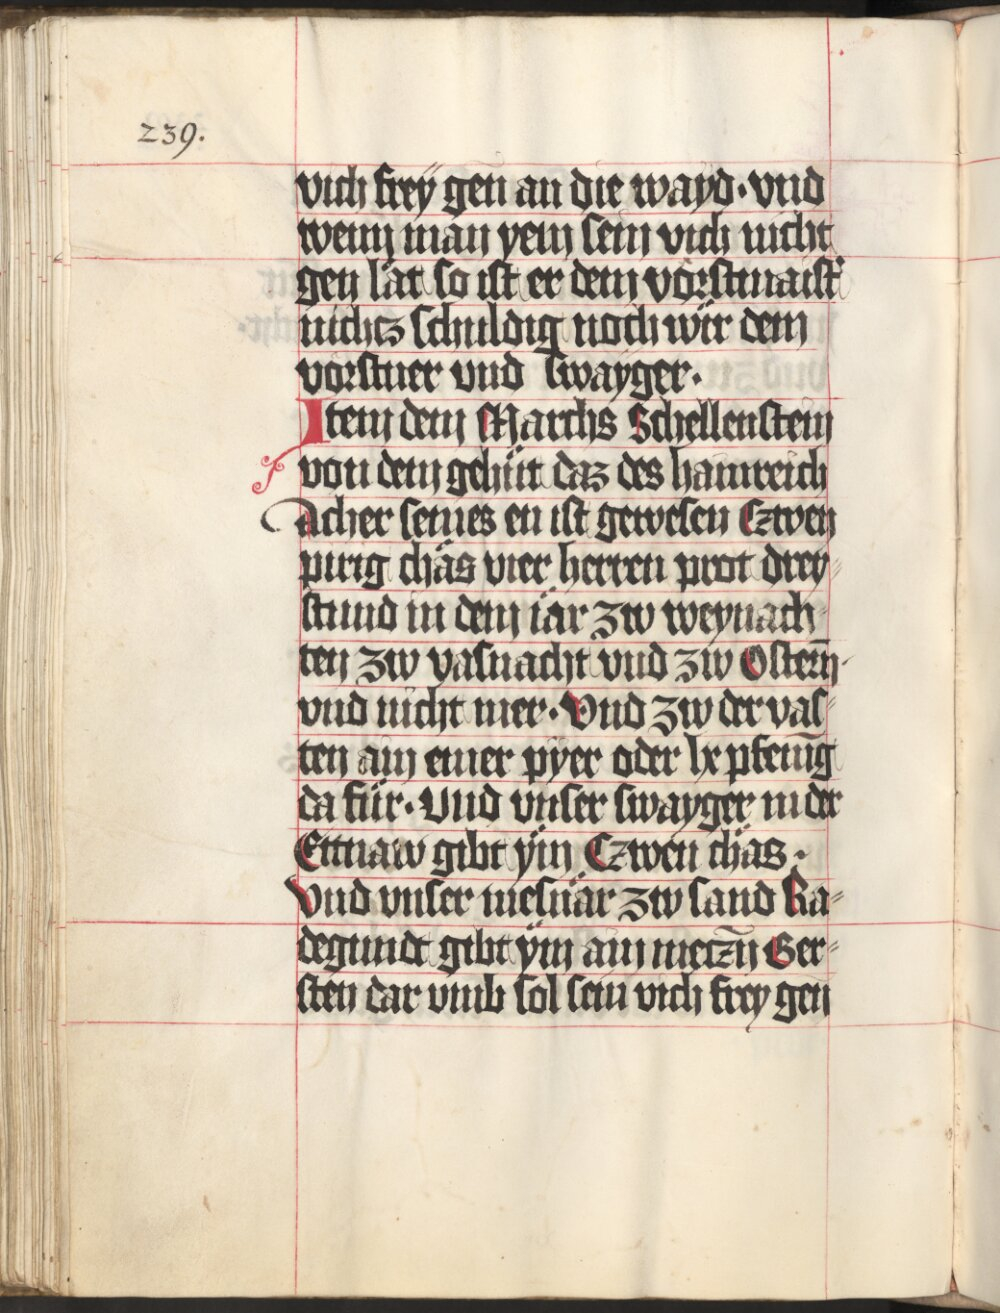 239.
vich freÿ gen an die wayd · vnd
wenn man yem sein vich nicht
gen lat so ist er dem vorstmaist'
nichtz schuldig noch wir dem
vorstner vnd swayger ·
Item dem Marchs Schellenstein
von dem gehüt daz des hainreich
Acher seines en ist gewesen Czwen
pirig chäs vier herren prot drey=
stund in dem iar zw weynach=
ten zw vasnacht vnd zw Ostern̄ ·
vnd nicht mer · Vnd zw der vas=
ten ain emer pÿer oder lx pfenn̄g
da für · Vnd vnser swayger in der
Ettnaw gibt ÿm Czwen chäs ·
Vnd vnser mesnär zw sand Ra=
degundt gibt ÿm ain meczn̄ Ger=
sten dar vmb sol sein vich frey gen